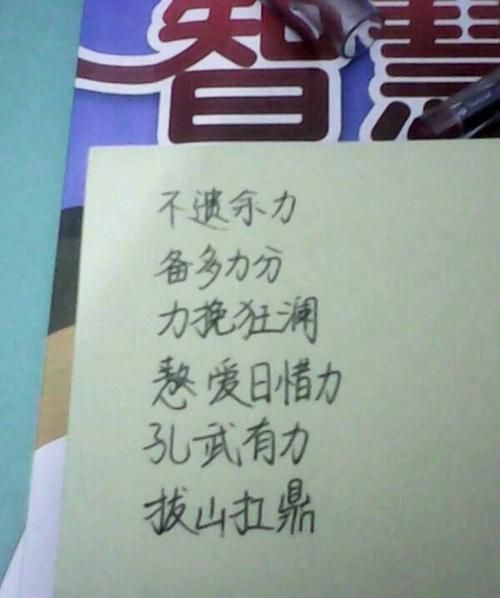 智慧
不遗余力
备多力分
力挽狂澜
愛日惜力
孔武有力
拔山扛鼎